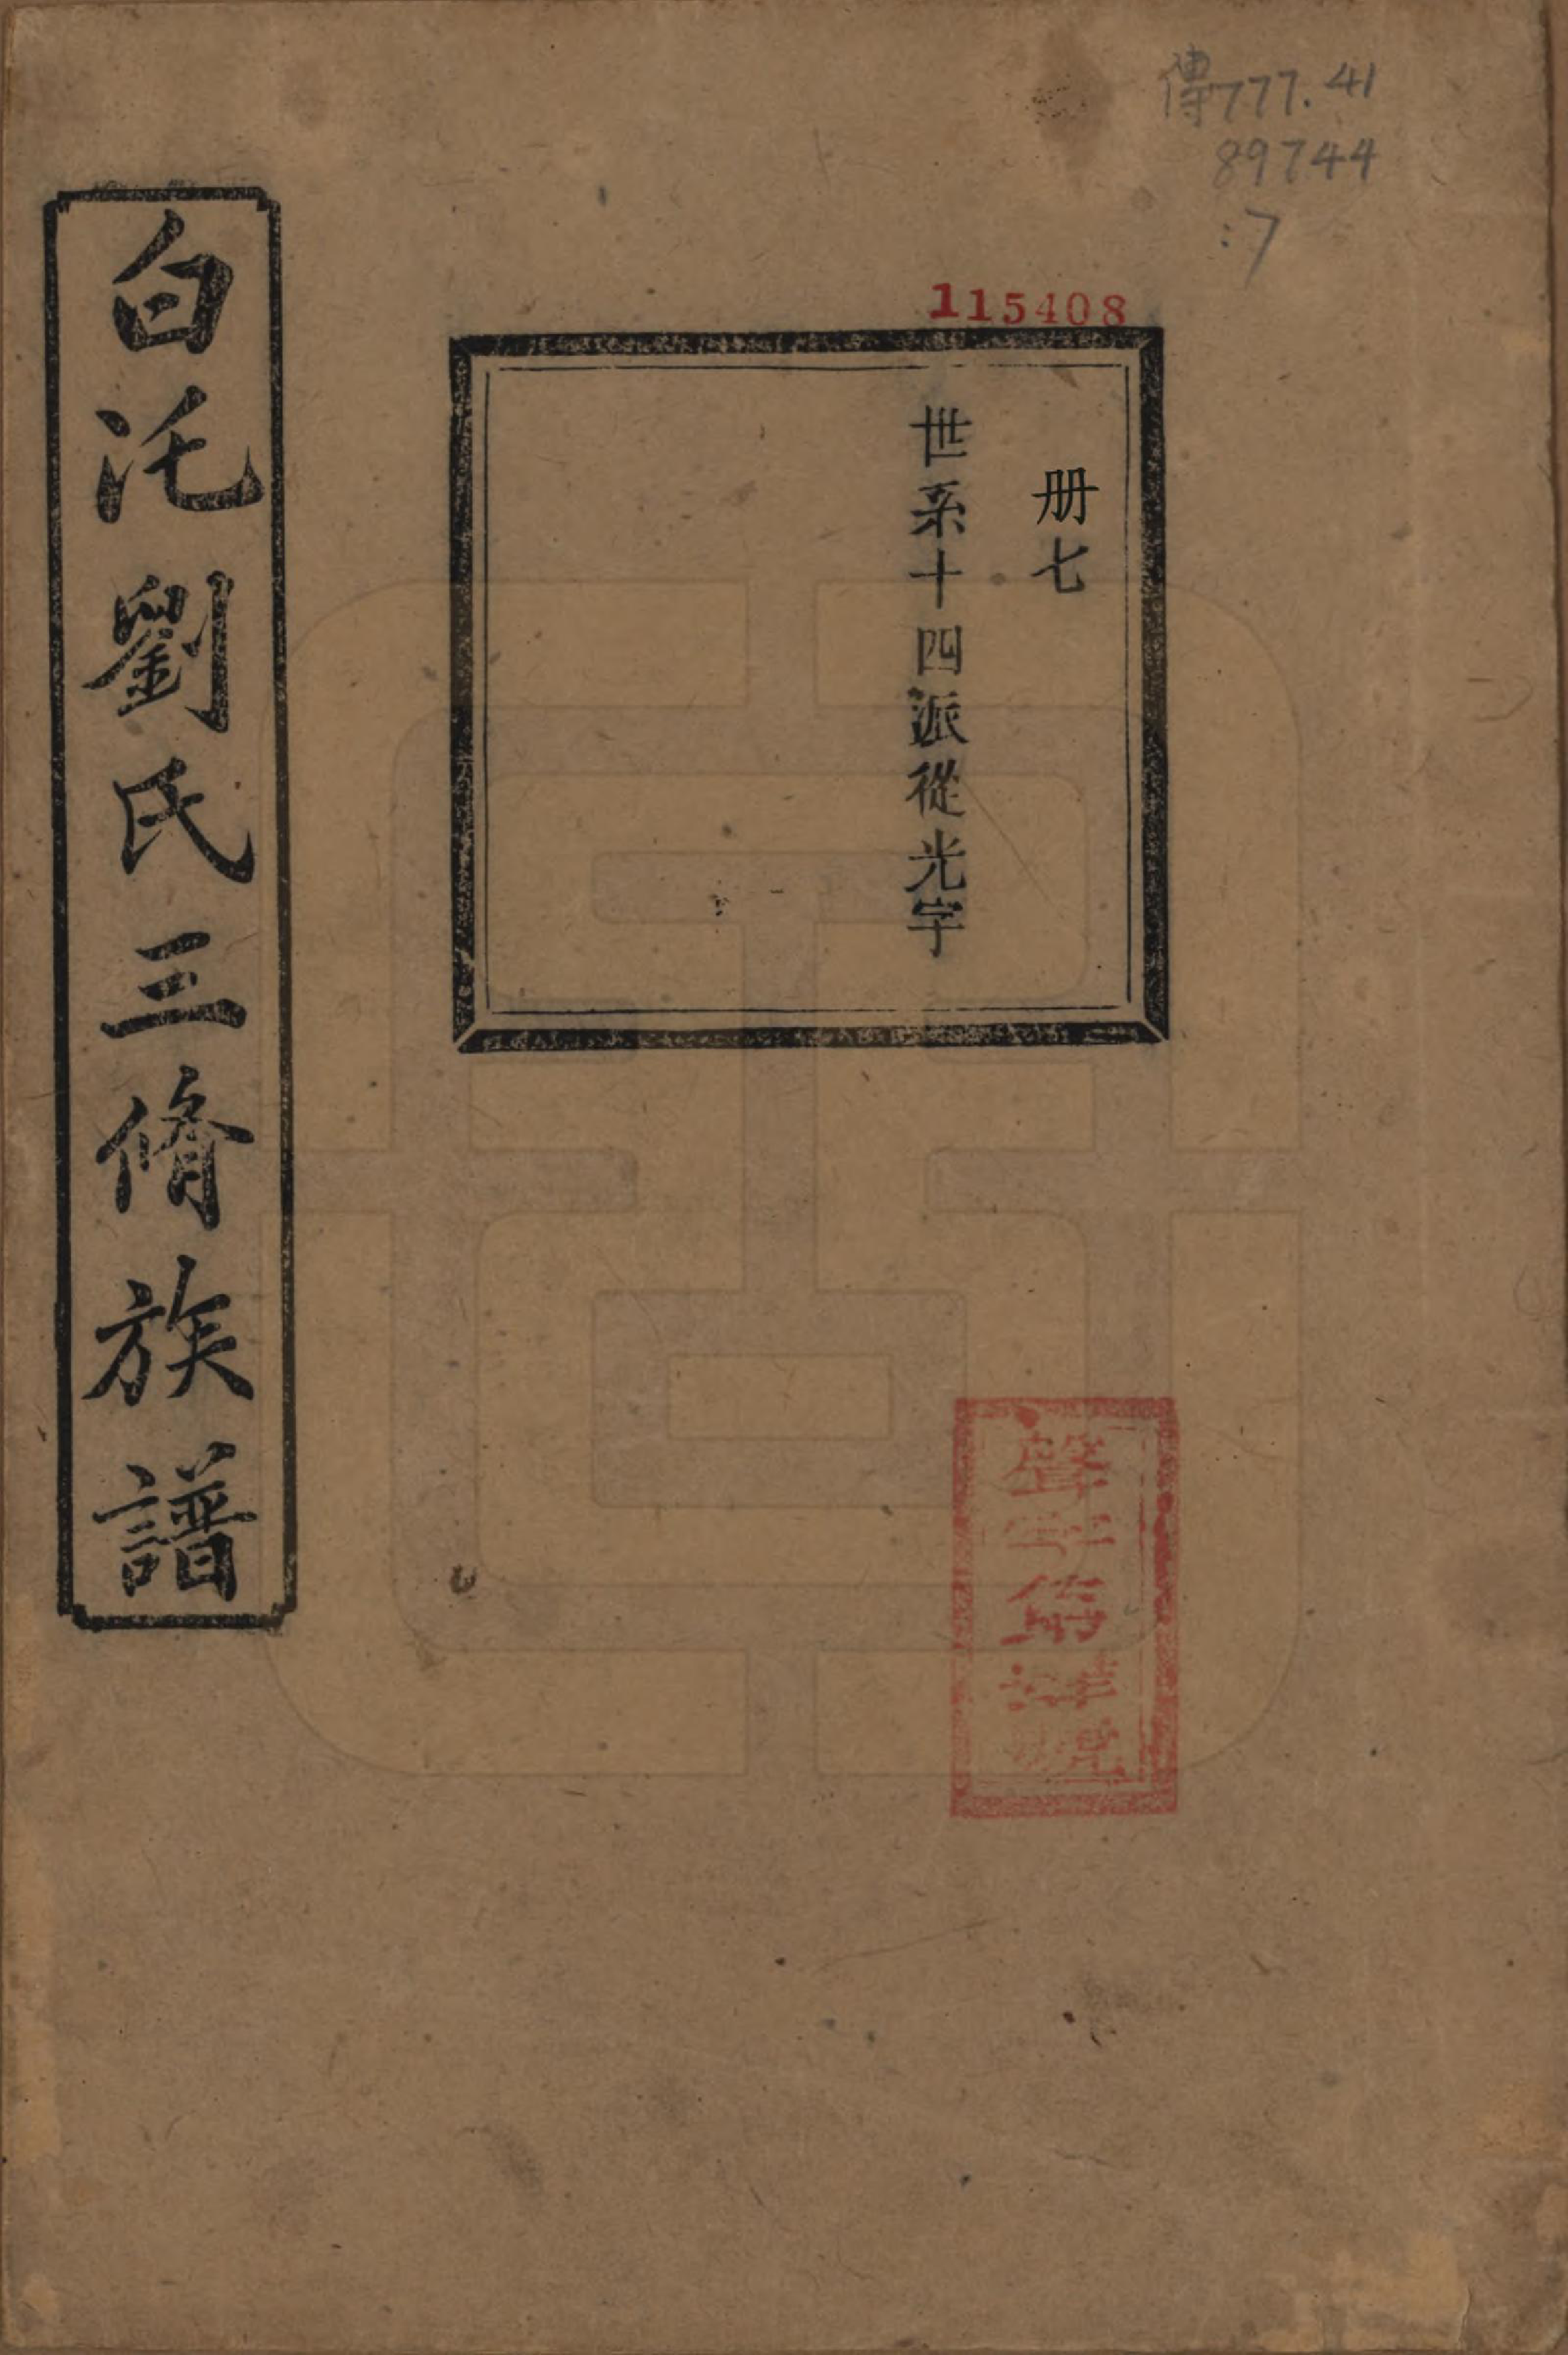 傳777.41
89744
:7
115408
册七
世系十四派從光字
白沱劉氏三脩族譜
聲字第 號